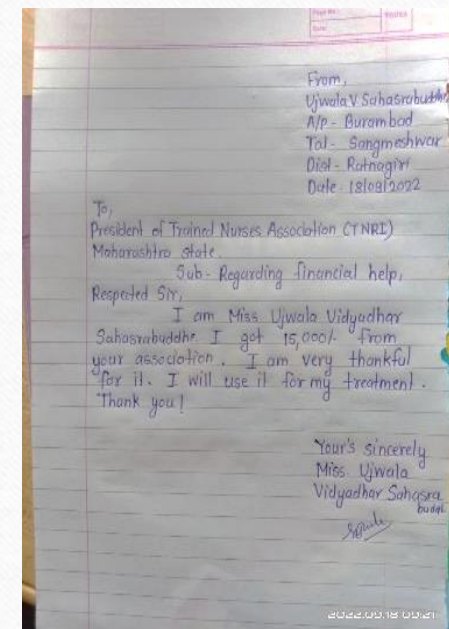 Page No.
Date
From,
Ujwala V Sahasrabuddhe
A/p - Burambad
Tal - Sangmeshwar
Dist - Ratnagiri
Date - 18/08/2022
To,
President of Trained Nurses Association (TNRI)
Maharashtra state.
Sub - Regarding financial help,
Respected Sir,
I am Miss. Ujwala Vidyadhar
Sahasrabuddhe I got 15,000/- from
your association. I am very thankful
for it. I will use it for my treatment.
Thank you!
Your's sincerely
Miss. Ujwala
Vidyadhar Sahasra
buddhe